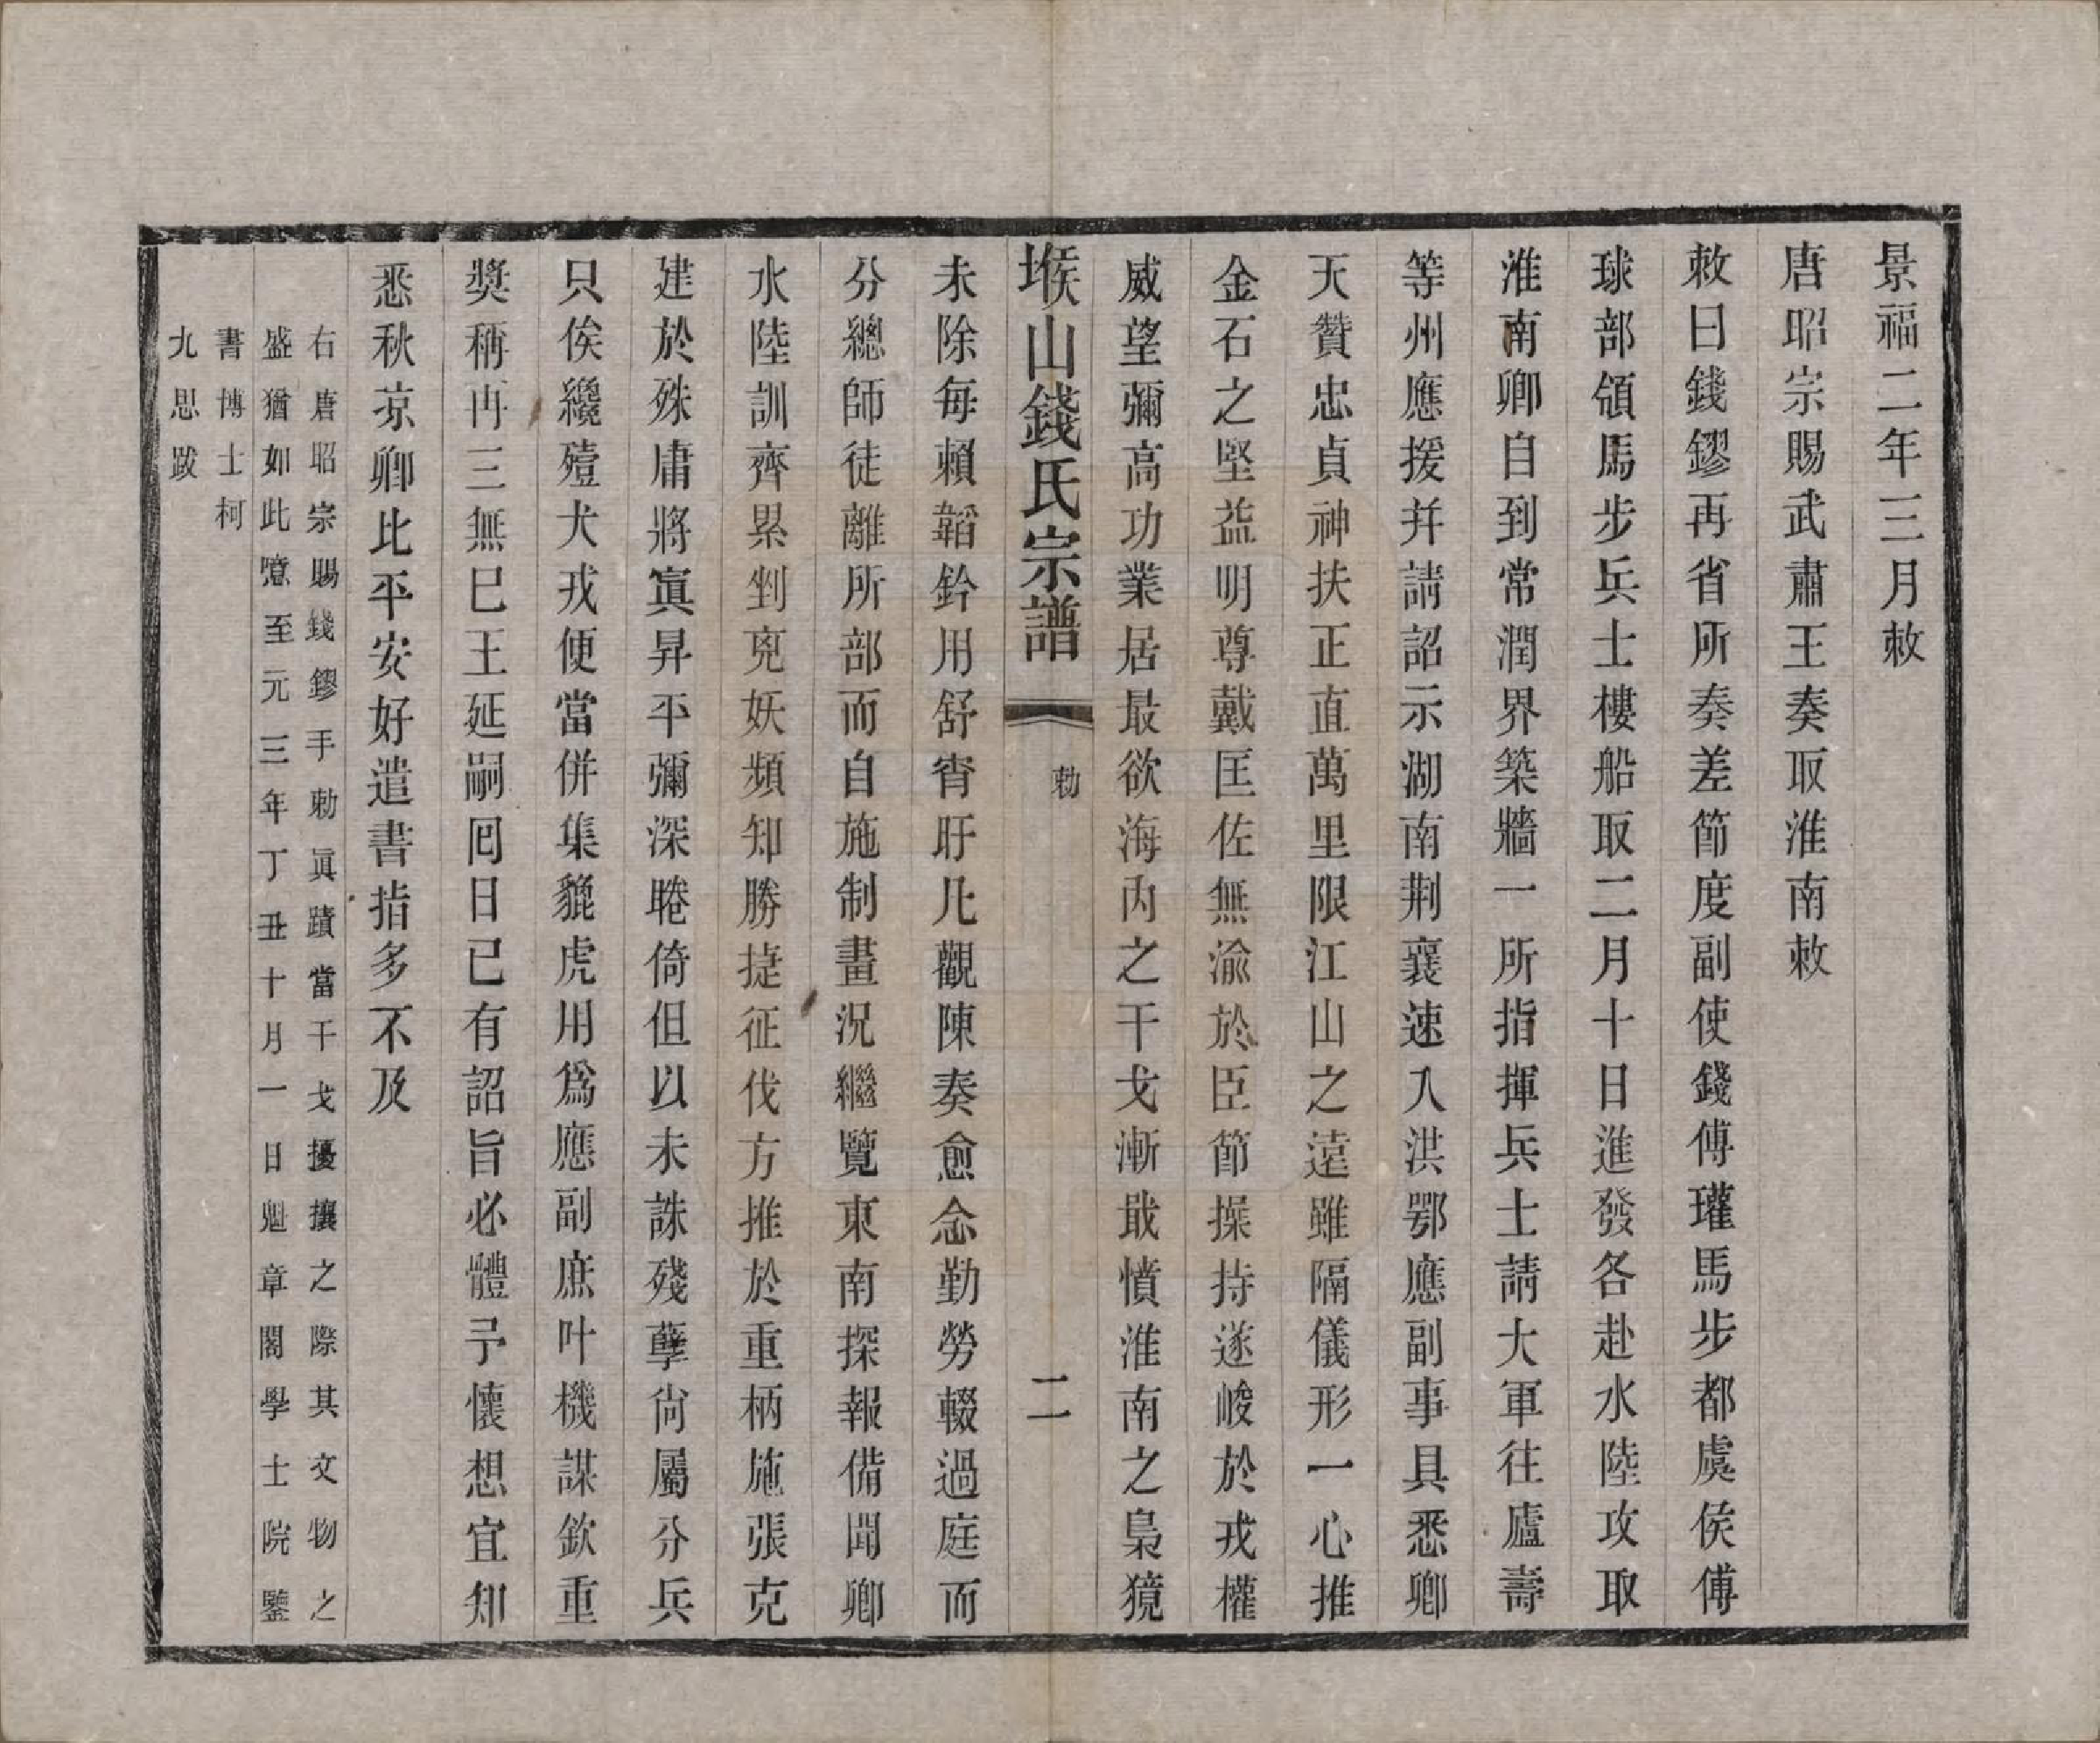 景福二年三月敕
唐昭宗賜武肅王奏取淮南敕
敕曰錢鏐再省所奏差節度副使錢傅瓘馬步都虞侯傅
球部領馬步兵士樓船取二月十日進發各赴水陸攻取
淮南卿自到常潤界築牆一所指揮兵士請大軍往廬壽
等州應援幷請詔示湖南荆襄速入洪鄂應副事具悉卿
天贊忠貞神扶正直萬里限江山之遠雖隔儀形一心推
金石之堅益明尊戴匡佐無渝於臣節操持遂峻於戎權
威望彌高功業居最欲海內之干戈漸戢憤淮南之梟獍
堠山錢氏宗譜 勅 二
未除每賴韜鈐用舒宵旰凡觀陳奏愈念勤勞輟過庭而
分總師徒離所部而自施制畫況繼覽東南探報備聞卿
水陸訓齊累剉兇妖頻知勝捷征伐方推於重柄施張克
建於殊庸將寘昇平彌深睠倚但以未誅殘孽尙屬分兵
只俟纔殪犬戎便當併集貔虎用爲應副庶叶機謀欽重
獎稱再三無巳王延嗣囘日已有詔旨必體予懷想宜知
悉秋涼卿比平安好遣書指多不及
右唐昭宗賜錢鏐手勅眞蹟當干戈擾攘之際其文物之
盛猶如此噫至元三年丁丑十月一日魁章閣學士院鑒
書博士柯
九思跋